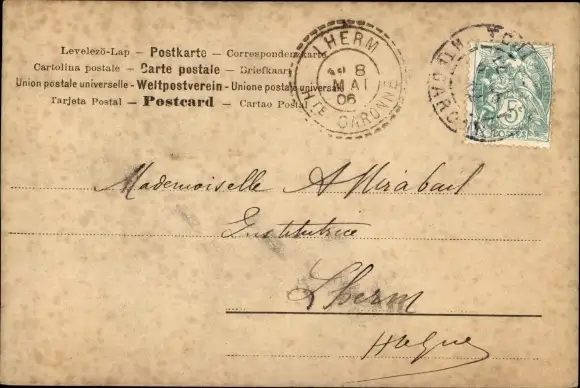 Levelezö-Lap — Postkarte — Correspondenzkarte
Cartolina postale — Carte postale — Briefkaart
Union postale universelle - Weltpostverein - Unione postale universale
Tarjeta Postal — Postcard — Cartao Postal
LHERM
8
MAI
06
HTE GARONNE
5c
Mademoiselle A Mirabail
Institutrice
Lherm